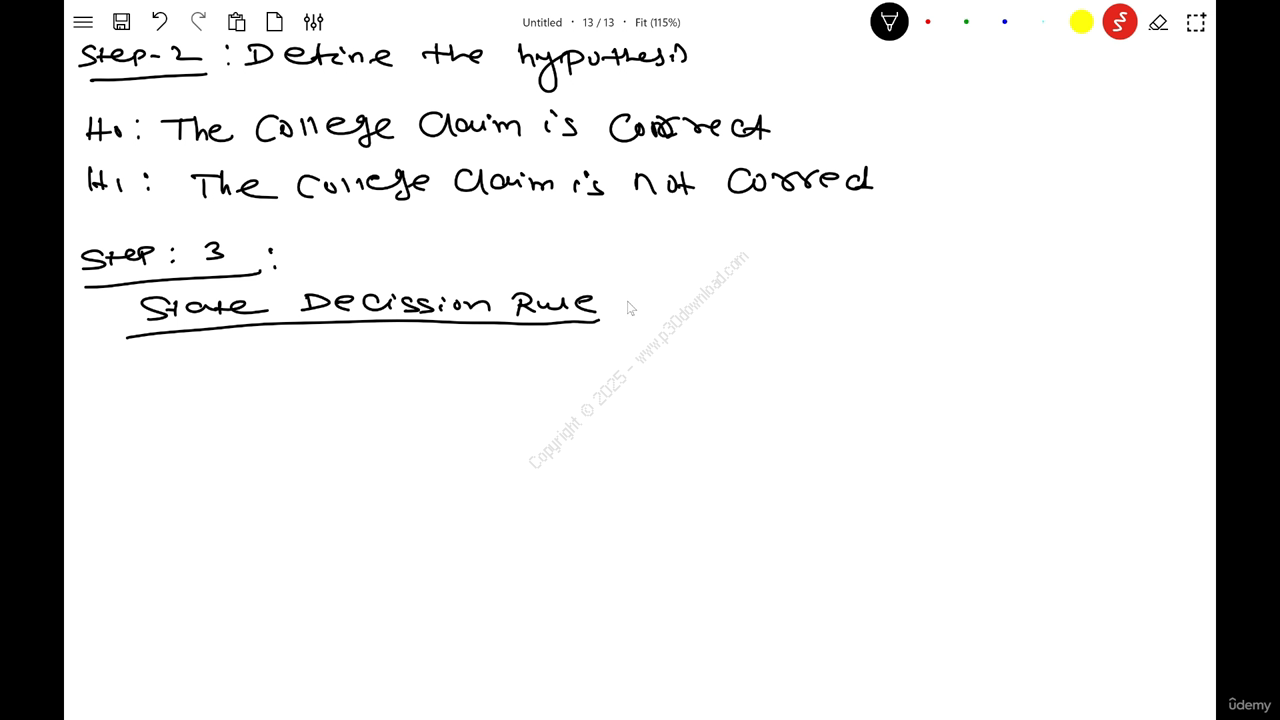 Untitled • 13 / 13 • Fit (115%)
Step-2 : Define the hypothesis
H0: The College Claim is Correct
H1: The College Claim is not Correct
Step: 3 :
State Decission Rule
Copyright © 2025 - www.p30download.com
ûdemy